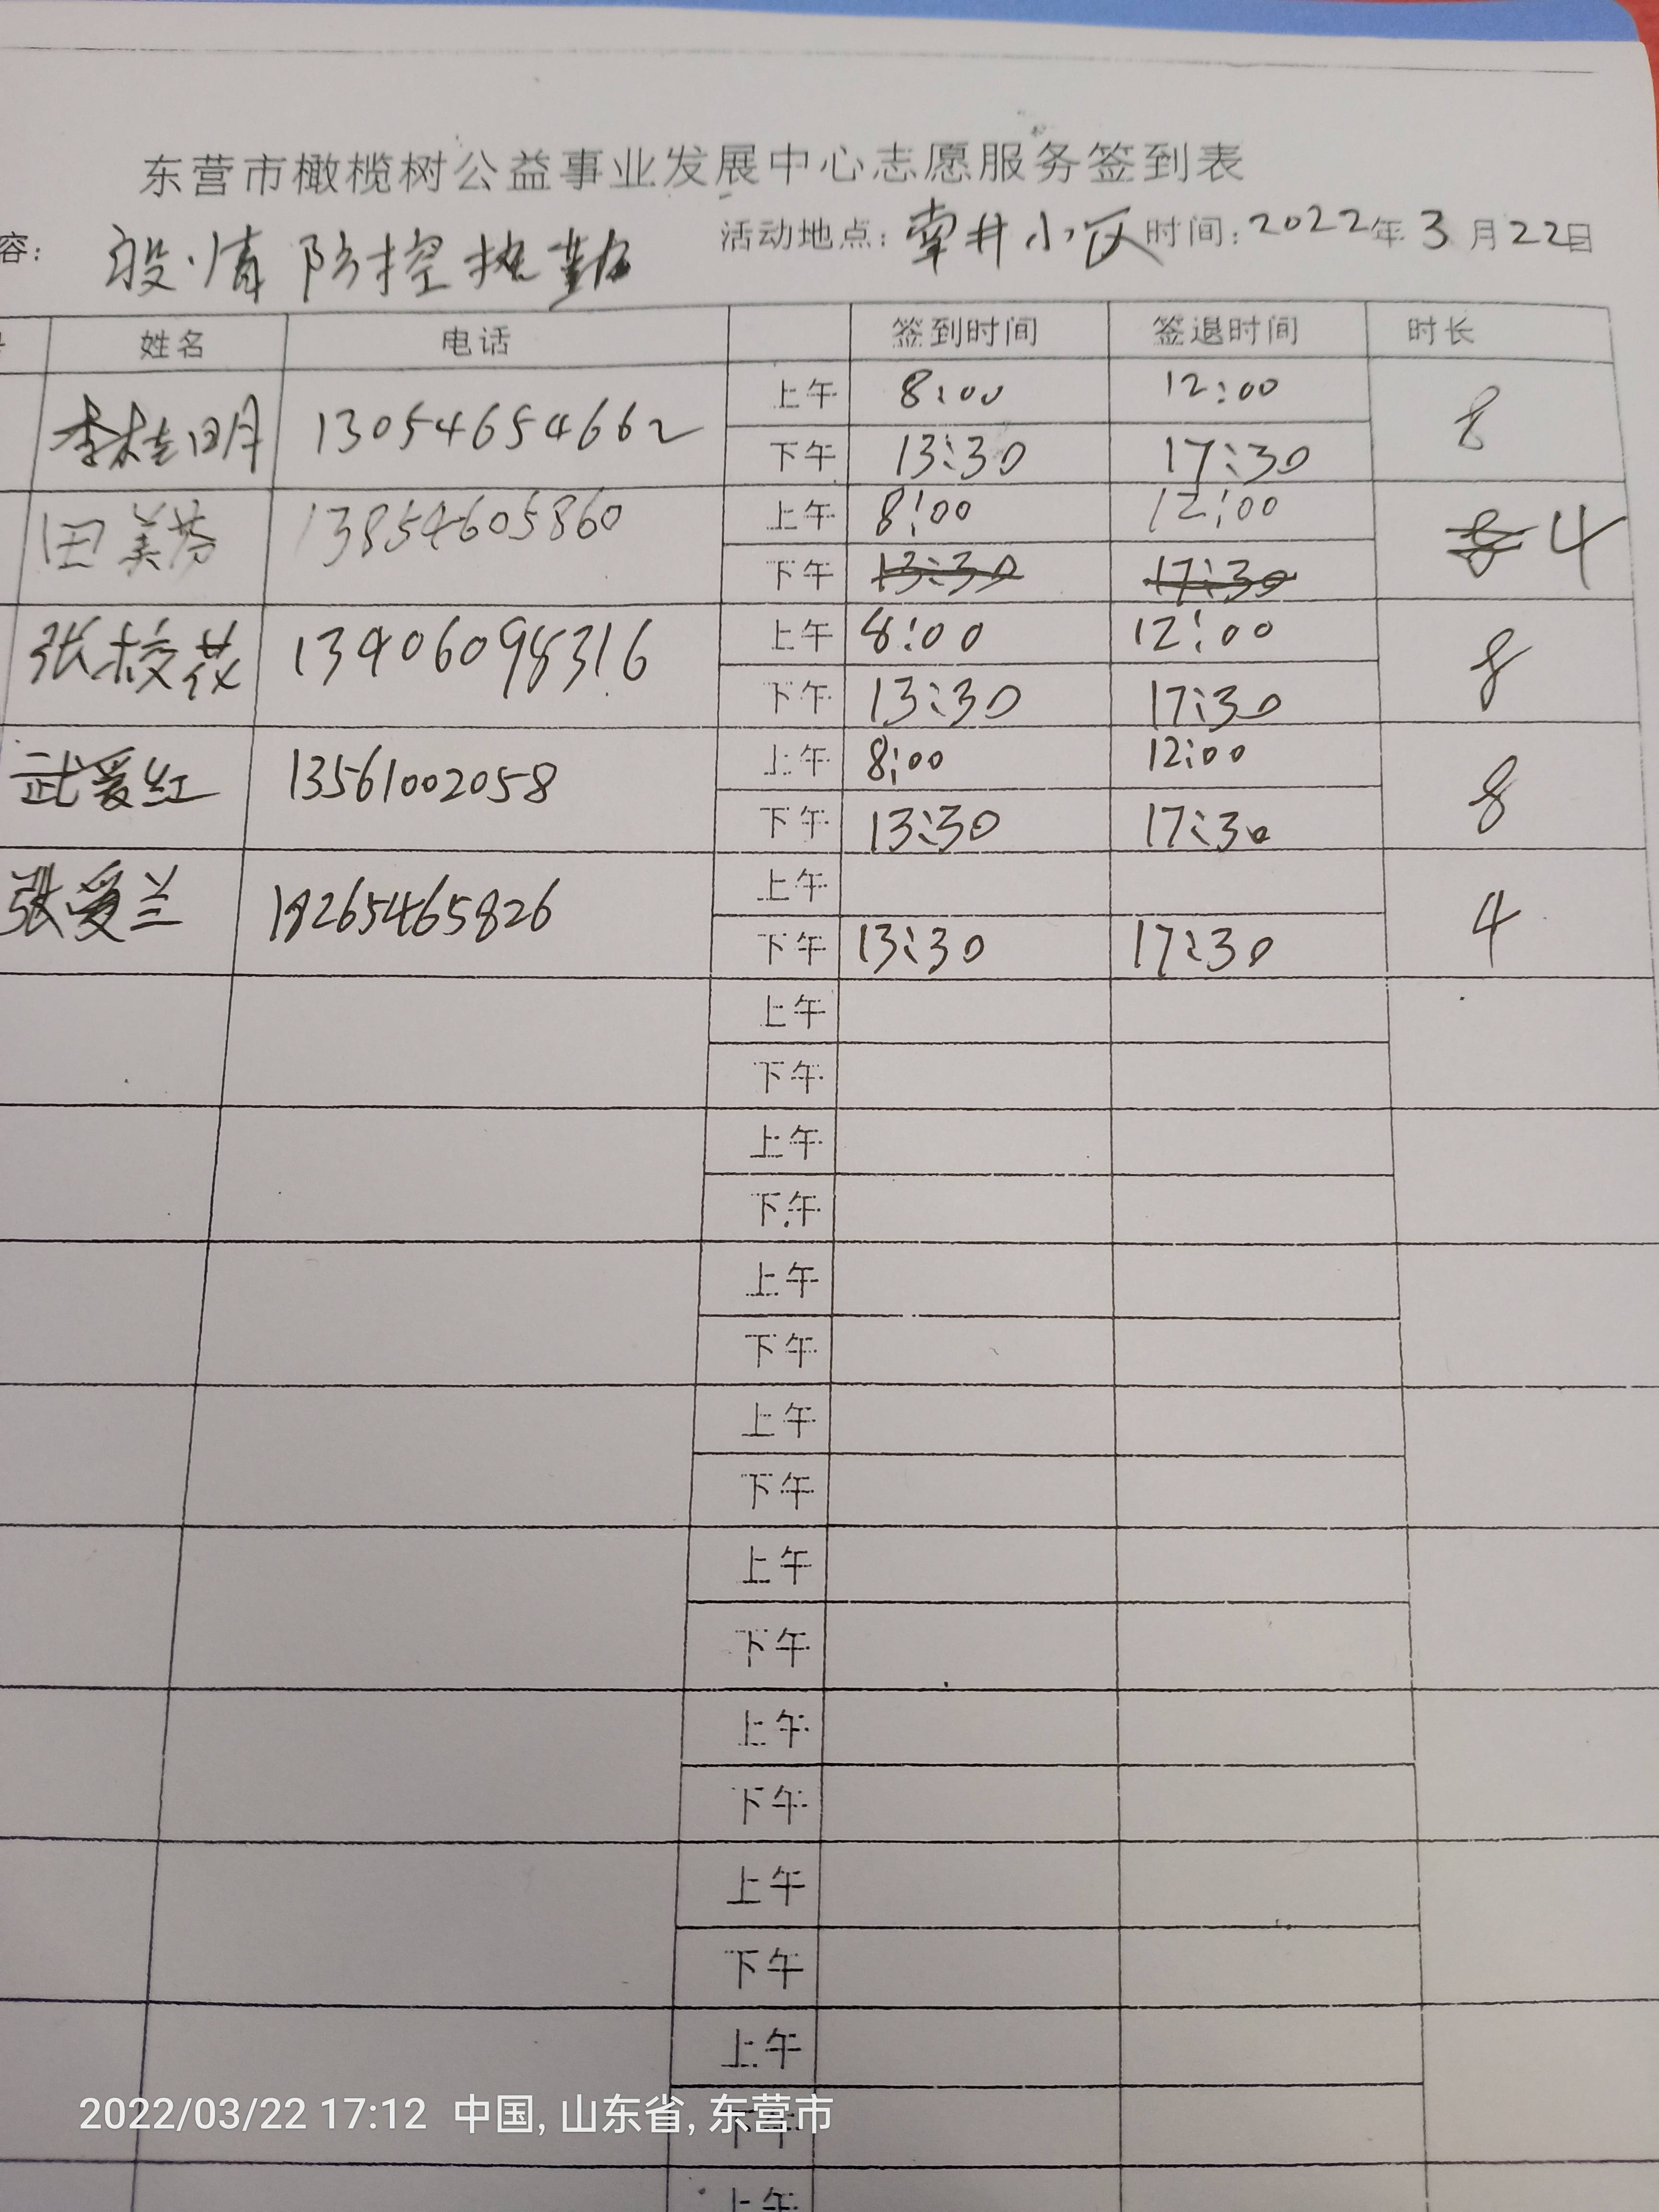 东营市橄榄树公益事业发展中心志愿服务签到表
容: 役情防控执勤 活动地点: 辛井小区 时间: 2022年3月22日
姓名 电话 签到时间 签退时间 时长
李桂明 13054654662 上午 8:00 12:00 8
下午 13:30 17:30
田美芬 13854605860 上午 8:00 12:00 4
下午 13:30 17:30
张校花 13406098316 上午 8:00 12:00 8
下午 13:30 17:30
武爱红 13561002058 上午 8:00 12:00 8
下午 13:30 17:30
张爱兰 18265465826 上午 4
下午 13:30 17:30
上午
下午
上午
下午
上午
下午
上午
下午
上午
下午
上午
下午
上午
下午
上午
下午
上午
2022/03/22 17:12 中国, 山东省, 东营市